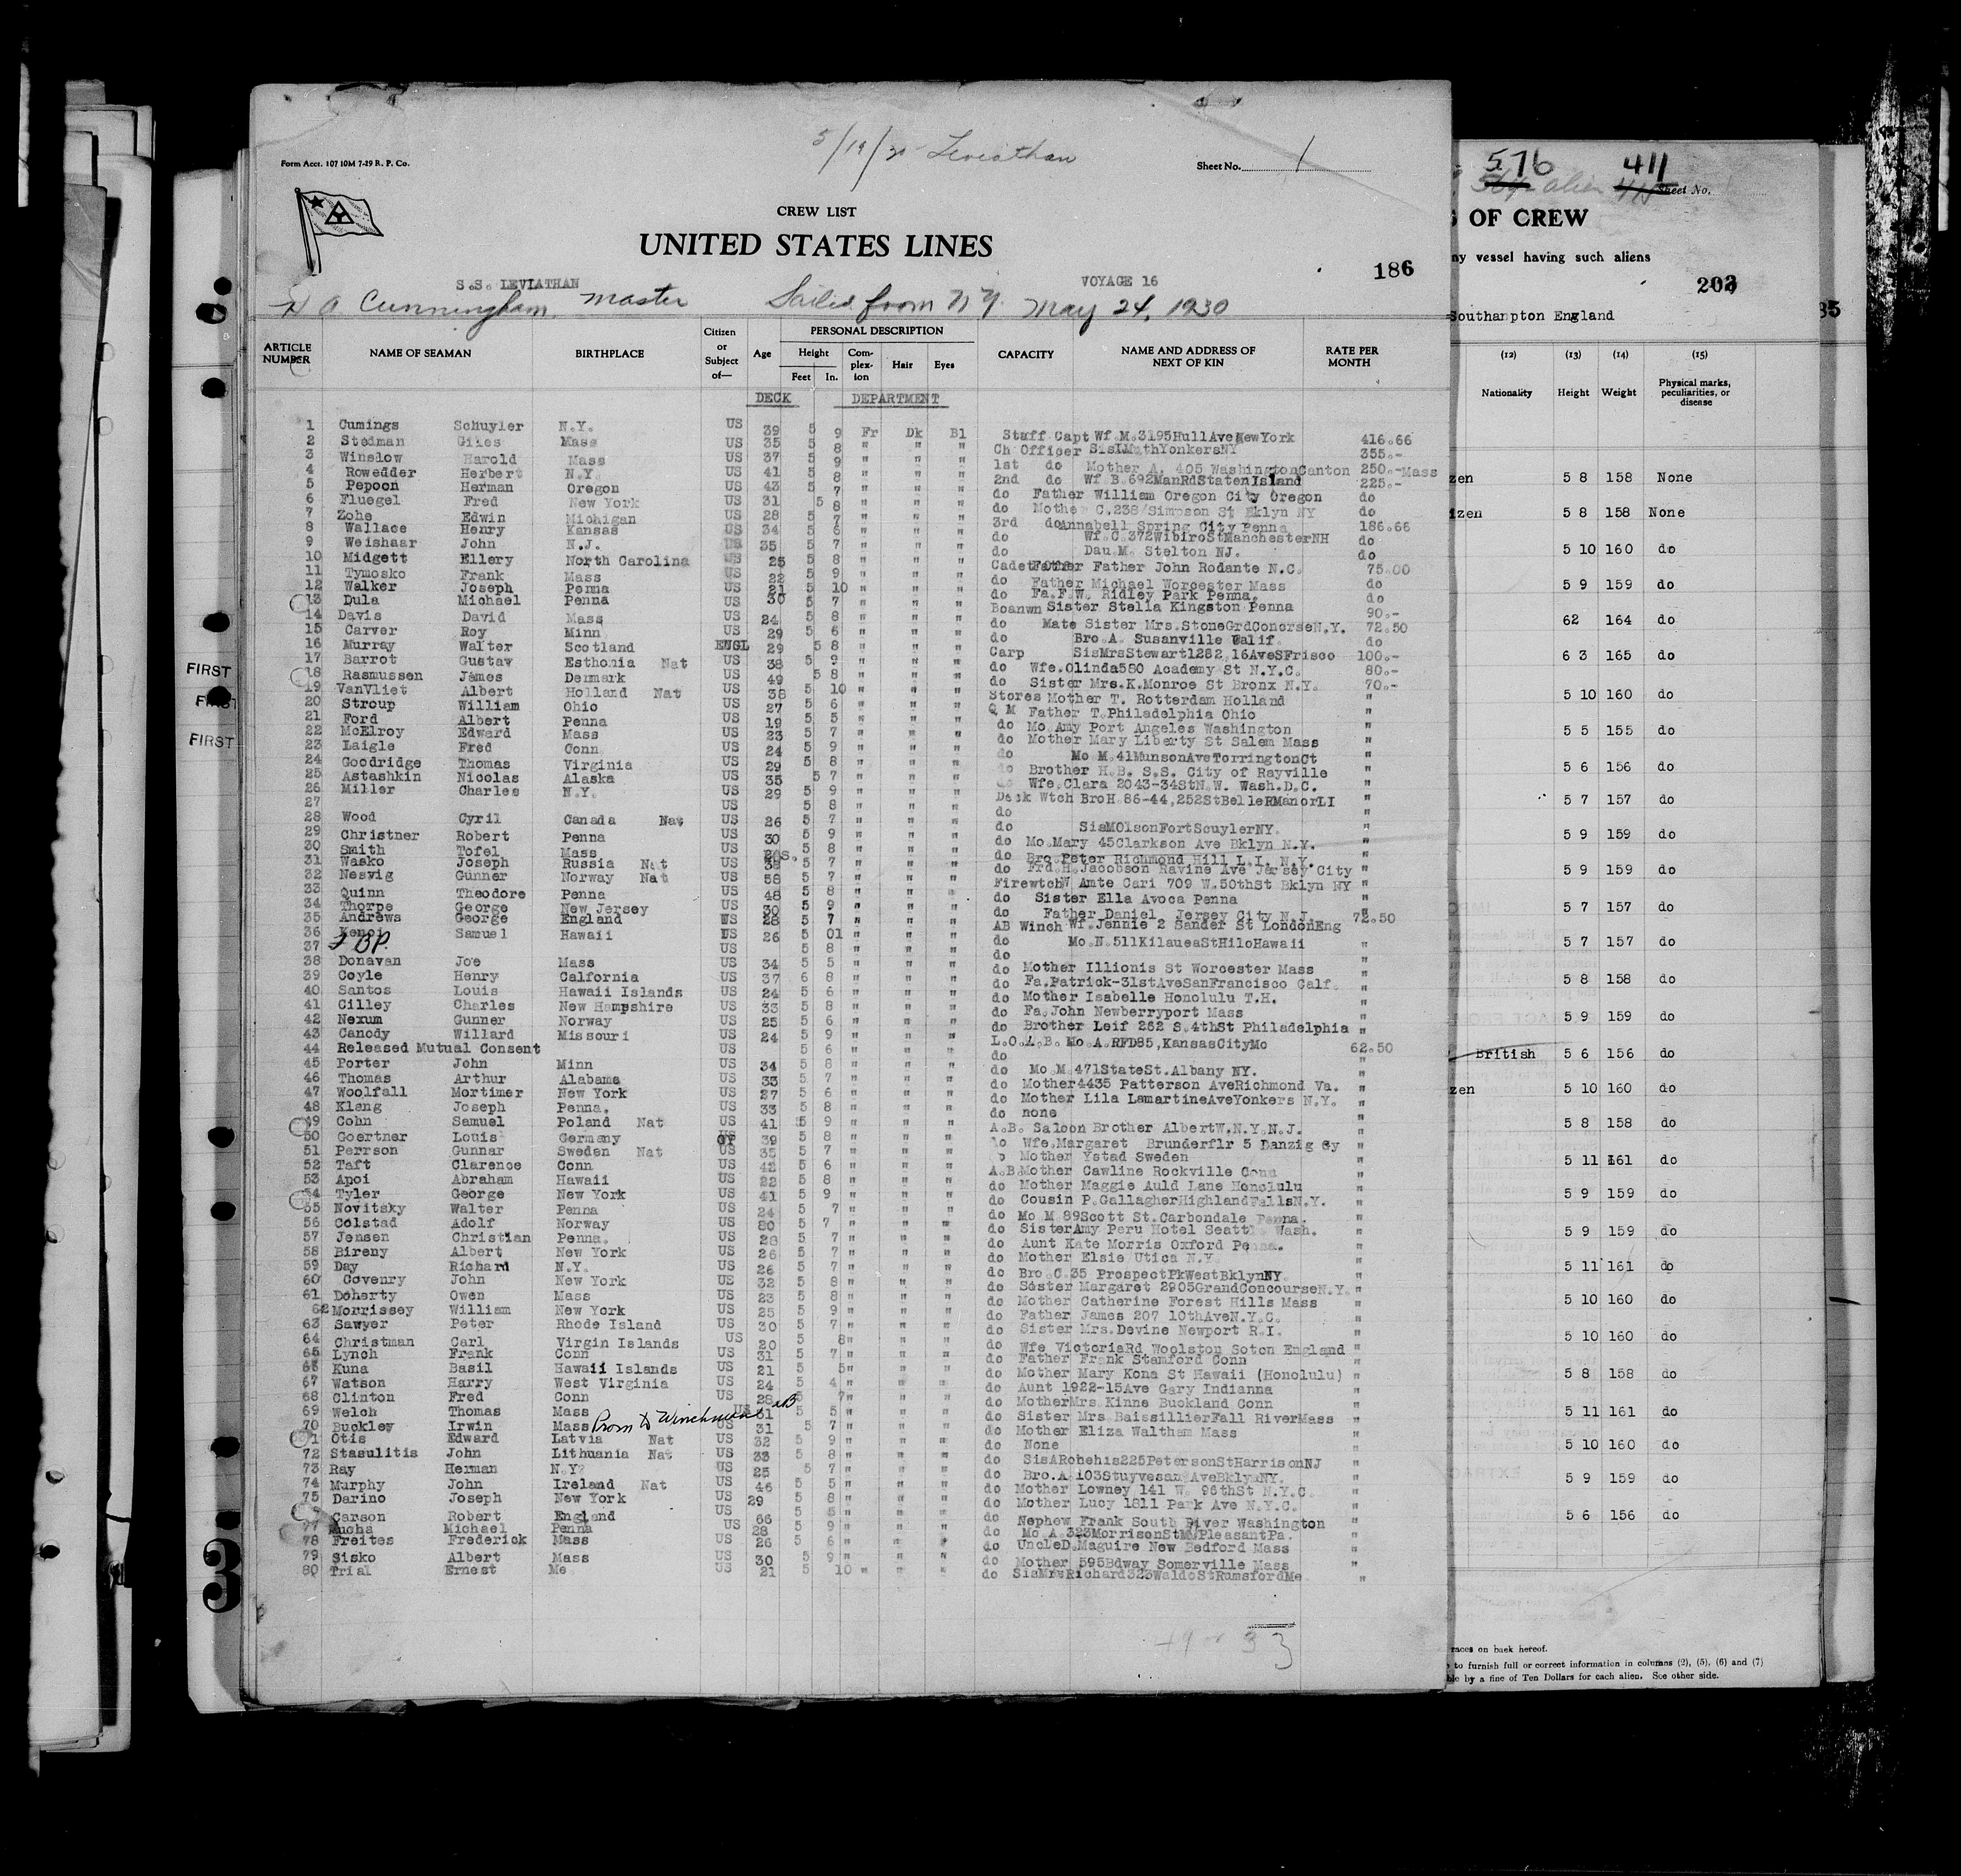 5/19/30 Leviathan
Form Acct. 107 10M 7-29 R. P. Co.
Sheet No. 1
CREW LIST
UNITED STATES LINES
186
S.S. LEVIATHAN VOYAGE 16
H A Cunningham, master Sailed from N Y. May 24, 1930
ARTICLE NUMBER NAME OF SEAMAN BIRTHPLACE Citizen or Subject of— Age PERSONAL DESCRIPTION Height Feet In. Complexion Hair Eyes CAPACITY NAME AND ADDRESS OF NEXT OF KIN RATE PER MONTH
DECK DEPARTMENT
1 Cumings Schuyler N.Y. US 39 5 9 Fr Dk Bl Staff Capt Wf.M.3195HullAveNewYork 416.66
2 Stedman Giles Mass US 35 5 8 " " " Ch Officer SisLMathYonkersNY 355.-
3 Winslow Harold Mass US 37 5 9 " " " 1st do Mother A. 405 WashingtonCanton Mass 250.-
4 Rowedder Herbert N.Y. US 41 5 8 " " " 2nd do Wf.B.692ManRdStatenIsland 225.-
5 Pepoon Herman Oregon US 43 5 7 " " " do Father William Oregon City Oregon do
6 Fluegel Fred New York US 31 5 8 " " " do Mothe C.238 Simpson St Bklyn NY do
7 Zohe Edwin Michigan US 28 5 7 " " " 3rd do Annabell Spring City Penna 186.66
8 Wallace Henry Kansas US 34 5 6 " " " do Wf.C.372WibiroStManchesterNH do
9 Weishaar John N.J. 35 5 7 " " " do Dau.M. Stelton NJ. do
10 Midgett Ellery North Carolina US 25 5 8 " " " Cadet Father John Rodante N.C. 75.00
11 Tymosko Frank Mass US 22 5 9 " " " do Father Michael Worcester Mass do
12 Walker Joseph Penna US 21 5 10 " " " do Fa.F.W. Ridley Park Penna. do
13 Dula Michael Penna US 30 5 7 " " " Boanwn Sister Stella Kingston Penna 90.-
14 Davis David Mass US 24 5 8 " " " do Mate Sister Mrs.StoneGrdConcrseN.Y. 72.50
15 Carver Roy Minn US 29 5 6 " " " do Bro.A. Susanville Calif. do
16 Murray Walter Scotland ENGL 29 5 8 " " " Carp SisMrsStewart1282,16AveSFrisco 100.-
17 Barrot Gustav Esthonia Nat US 38 5 9 " " " do Wfe.Olinda580 Academy St N.Y.C. 80.-
18 Rasmussen James Denmark US 49 5 8 " " " do Sister Mrs.K.Monroe St Bronx N.Y. 70.-
19 VanVliet Albert Holland Nat US 38 5 10 " " " Stores Mother T. Rotterdam Holland "
20 Stroup William Ohio US 27 5 6 " " " Q M Father T.Philadelphia Ohio "
21 Ford Albert Penna US 19 5 5 " " " do Mo.Amy Port Angeles Washington "
22 McElroy Edward Mass US 23 5 7 " " " do Mother Mary Liberty St Salem Mass "
23 Laigle Fred Conn US 24 5 9 " " " do Mo M.41MunsonAveTorringtonCt "
24 Goodridge Thomas Virginia US 29 5 8 " " " do Brother H.B. S.S. City of Rayville "
25 Astashkin Nicolas Alaska US 35 5 7 " " " Wfe.Clara 2043-34StN.W. Wash.D.C. "
26 Miller Charles N.Y. US 29 5 9 " " " Deck Wtch BroH.86-44,252StBelleRManorLI "
27 US 5 8 " " " do
28 Wood Cyril Canada Nat US 26 5 7 " " " do SisMOlsonFortScuylerNY. "
29 Christner Robert Penna US 30 5 9 " " " do Mo.Mary 45Clarkson Ave Bklyn N.Y. "
30 Smith Tofel Mass US 5 8 " " " do Bro.Peter Richmond Hill L.I. N.Y. "
31 Wasko Joseph Russia Nat US 38 5 7 " " " do Frd.H.Jacobson Ravine Ave Jersey City "
32 Nesvig Gunner Norway Nat US 58 5 7 " " " Firewtch Amte Cari 709 W.50thSt Bklyn NY "
33 Quinn Theodore Penna US 48 5 8 " " " do Sister Ella Avoca Penna "
34 Thorpe George New Jersey US 30 5 9 " " " do Father Daniel, Jersey City N.J. 72.50
35 Andrews George England US 28 5 7 " " " AB Winch Wf.Jennie 2 Sander St LondonEng
36 Kenoi Samuel Hawaii US 26 5 01 " " " do Mo.N.511KilaueaStHiloHawaii "
37 US 5 8 " " " do "
38 Donavan Joe Mass US 34 5 5 " " " do Mother Illionis St Worcester Mass "
39 Coyle Henry Calfornia US 37 6 8 " " " do Fa.Patrick-31stAveSanFrancisco Calf. "
40 Santos Louis Hawaii Islands US 24 5 6 " " " do Mother Isabelle Honolulu T.H. "
41 Cilley Charles New Hampshire US 33 5 8 " " " do Fa.John Newberryport Mass "
42 Nexum Gunner Norway US 25 5 6 " " " do Brother Leif 262 S.4thSt Philadelphia "
43 Canody Willard Missouri US 24 5 9 " " " L.O.A.B. Mo.A.RFD85,KansasCityMo 62.50
44 Released Mutual Consent US 5 6 " " " do
45 Porter John Minn US 34 5 8 " " " do Mo M.471StateSt.Albany NY. "
46 Thomas Arthur Alabama US 33 5 7 " " " do Mother4435 Patterson AveRichmond Va. "
47 Woolfall Mortimer New York US 27 5 6 " " " do Mother Lila LamartineAveYonkers N.Y. "
48 Klang Joseph Penna. US 33 5 8 " " " do none "
49 Cohn Samuel Poland Nat US 41 5 9 " " " A.B. Saloon Brother AlbertW.N.Y.N.J. "
50 Goertner Louis Germany 39 5 8 " " " do Wfe.Margaret Brunderflr 5 Danzig Gy "
51 Perrson Gunnar Sweden Nat US 35 5 7 " " " Mother Ystad Sweden "
52 Taft Clarence Conn US 42 5 6 " " " A.B.Mother Cawline Rockville Conn "
53 Apoi Abraham Hawaii US 22 5 8 " " " do Mother Maggie Auld Lane Honolulu "
54 Tyler George New York US 41 5 9 " " " do Cousin P.GallagherHighlandFallsN.Y. "
55 Novitsky Walter Penna US 24 5 7 " " " do Mo M 89Scott St.Carbondale Penna. "
56 Colstad Adolf Norway US 30 5 7 " " " do SisterAmy Peru Hotel Seattle Wash. "
57 Jensen Christian Penna. US 28 5 7 " " " do Aunt Kate Morris Oxford Penna. "
58 Bireny Albert New York US 26 5 7 " " " do Mother Elsie Utica N.Y. "
59 Day Richard N.Y. US 26 5 7 " " " do Bro.C.35 ProspectPkWestBklynNY. "
60 Covenry John New York US 32 5 8 " " " do Sister Margaret 2905GrandConcourseN.Y. "
61 Doherty Owen Mass US 23 5 8 " " " do Mother Catherine Forest Hills Mass "
62 Morrissey William New York US 25 5 9 " " " do Father James 207 10thAveN.Y.C. "
63 Sawyer Peter Rhode Island US 30 5 7 " " " do Sister Mrs.Devine Newport R.I. "
64 Christman Carl Virgin Islands US 20 5 8 " " " do Wfe VictoriaRd Woolston Soton England "
65 Lynch Frank Conn US 31 5 7 " " " do Father Frank Stamford Conn "
66 Kuna Basil Hawaii Islands US 21 5 5 " " " do Mother Mary Kona St Hawaii (Honolulu) "
67 Watson Harry West Virginia US 24 5 4 " " " do Aunt 1922-15Ave Gary Indianna "
68 Clinton Fred Conn US 28 5 7 " " " do MotherMrs.Kinne Buckland Conn "
69 Welch Thomas Mass US 31 5 5 " " " do Sister Mrs.BaissillierFall RiverMass "
70 Buckley Irwin Mass Prom to Winchman AB US 31 5 7 " " " do Mother Eliza Waltham Mass "
71 Otis Edward Latvia Nat US 32 5 9 " " " do None "
72 Stasulitis John Lithuania Nat US 33 5 8 " " " do SisARobehis225PetersonStHarrisonNJ "
73 Ray Herman N.Y. US 25 5 7 " " " do Bro.A.103Stuyvesan AveBklynNY. "
74 Murphy John Ireland Nat US 46 5 5 " " " do Mother Lowney 141 W. 96thSt N.Y.C. "
75 Darino Joseph New York US 29 5 8 " " " do Mother Lucy 1811 Park Ave N.Y.C. "
Carson Robert England US 66 5 5 " " " do Nephew Frank South River Washington "
77 Mucha Michael Penna US 28 5 9 " " " do Mo.A.323MorrisonStMtPleasantPa. "
78 Freites Frederick Mass US 26 5 6 " " " do UncleD.Maguire New Bedford Mass "
79 Sisko Albert Mass US 30 5 9 " " " do Mother 595Bdway Somerville Mass "
80 Trial Ernest Me. US 21 5 10 " " " do SisMrsRichard323WaldoStRumsfordMe. "
33
FIRST
FIRST
FIRST
3
576 411
alien Sheet No.
OF CREW
ny vessel having such aliens
203
35
Southampton England
(12) (13) (14) (15)
Nationality Height Weight Physical marks, peculiarities, or disease
zen 5 8 158 None
izen 5 8 158 None
5 10 160 do
5 9 159 do
62 164 do
6 3 165 do
5 10 160 do
5 5 155 do
5 6 156 do
5 7 157 do
5 9 159 do
5 9 159 do
5 7 157 do
5 7 157 do
5 8 158 do
5 9 159 do
British 5 6 156 do
zen 5 10 160 do
5 8 158 do
5 11 161 do
5 9 159 do
5 9 159 do
5 11 161 do
5 10 160 do
5 10 160 do
5 8 158 do
5 11 161 do
5 10 160 do
5 9 159 do
5 6 156 do
races on back hereof.
to furnish full or correct information in columns (2), (5), (6) and (7)
ble by a fine of Ten Dollars for each alien. See other side.